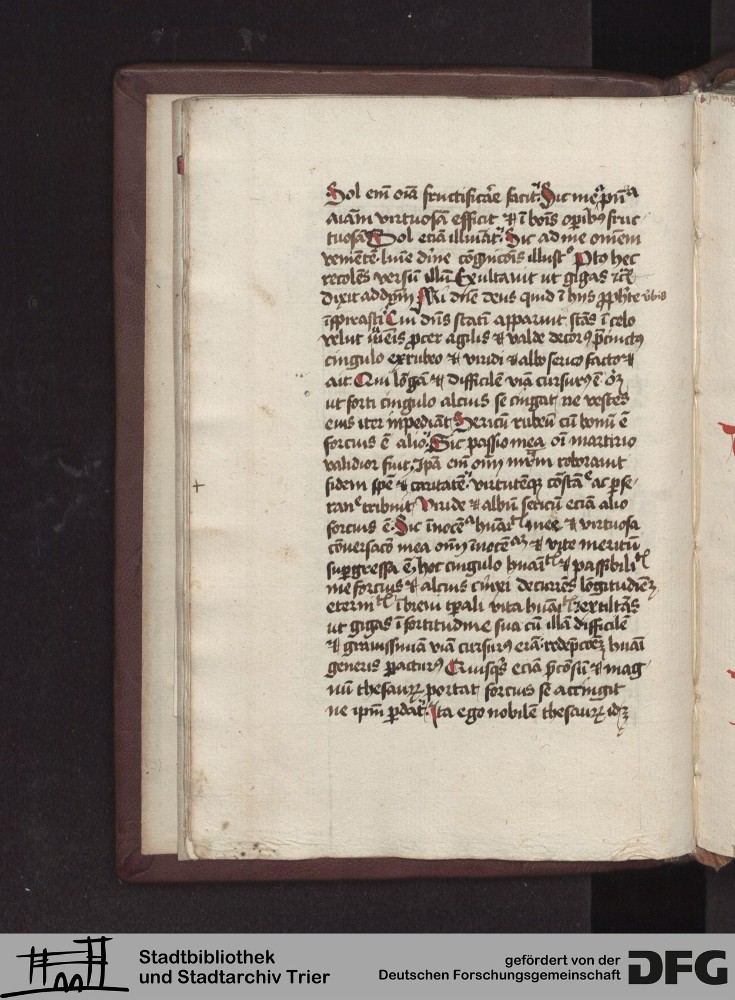 Sol em̄ oīa fructificāre facit. Sic mea pn̄ia
aīam virtuosā efficit ⁊ ī boīs opibꝰ fruc
tuosā Sol eciā illuīat. Sic ad me om̄em
veniētē lumē dīne cognicōis illustro
recolēs versū illū Exultauit ut gigas
dixit ad dn̄m Mi dn̄e deus quid ī hijs ꝓphte v̄bis
īspirasti Cui dn̄s statī apparuit stās ī celo
velut iuuēis ꝓcer agilis ⁊ valde decorꝰ p̄cinctꝰ
cingulo ex rubeo ⁊ viridi ⁊ albo serico facto ⁊
ait Qui lōgā ⁊ difficilē viā cursurꝰ ē
ut forti cingulo alcius se cingat ne vestes
eius iter īnpediāt Sericū rubeū cū bonū ē
forcius ē alio. Sic passio mea oī martirio
validior fuit. Ip̄a em̄ om̄ mr̄m roborauit
fidem spē ⁊ caritatē. virtutēqꝫ cōstācie ac ꝑse
rancie tribuit Viride ⁊ albū sericū eciā alio
forcius ē. Sic īnocēcia hūaītatis mee ⁊ virtuosa
cōuersacō mea om̄ īnocēciam ⁊ vite meritū
suꝑgressa ē. hoc cingulo hūaītatis ⁊ passibilitatis
me forcius ⁊ alcius cinxi decurrēs lōgitudīeꝫ
eternitatis ī breui tꝑali vita hūaītatis. ⁊ exultās
ut gigas ī fortitudine sua cū illā difficilē
⁊ grauissimā viā cursurꝰ erā. redēpcōeꝫ hūāi
generis ꝑacturꝰ Quisqꝫ eciā p̄cōsū ⁊ mag
nū thesaurꝫ portat forcius se accingit
ne ip̄m ꝑdat. Ita ego nobilē thesaurꝫ
Stadtbibliothek
und Stadtarchiv Trier
gefördert von der
Deutschen Forschungsgemeinschaft
DFG